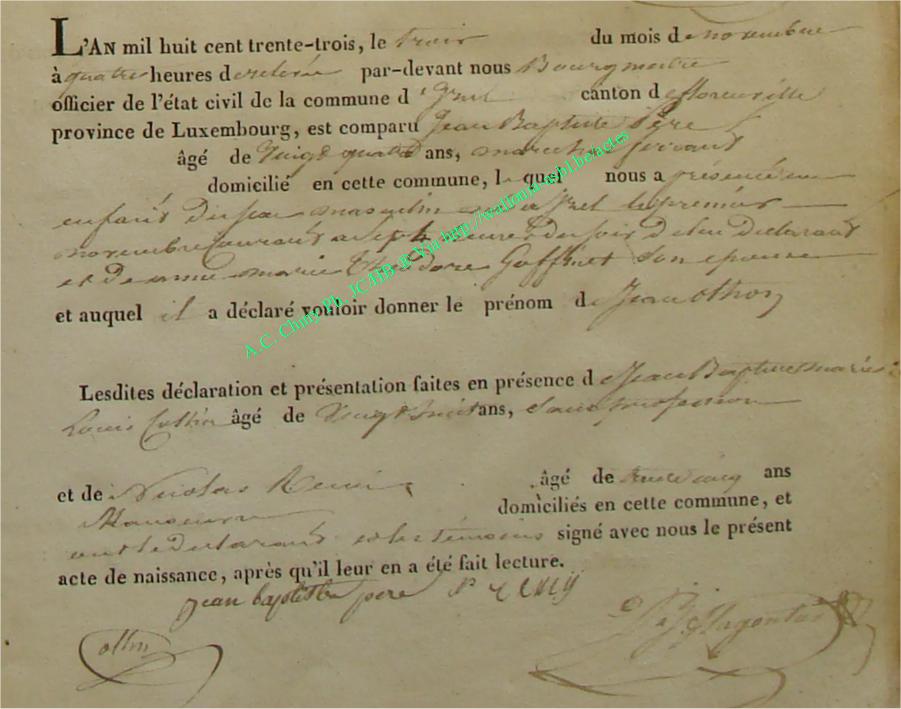 L'AN mil huit cent trente-trois, le trois du mois de novembre
à quatre heures de relevée par-devant nous Bourgmestre
officier de l'état civil de la commune d' Izel canton de florenville
province de Luxembourg, est comparu Jean Baptiste Père
âgé de vingt quatre ans, marechal ferrant
domicilié en cette commune, lequel nous a présenté un
enfant du sexe masculin né à Izel le premier
novembre courant a sept heures du soir de lui declarant
et de anne marie Théodore Goffinet son épouse
et auquel il a déclaré vouloir donner le prénom de Jean othon
Lesdites déclaration et présentation faites en présence de Jean Baptiste marie
Louis âgé de vingt ans, sans profession
et de Nicolas Remi âgé de trente cinq ans
domiciliés en cette commune, et
ont le declarant et les témoins signé avec nous le présent
acte de naissance, après qu'il leur en a été fait lecture.
jean baptiste pere
A.C. Chiny Ph. JCHB ® Via http://wallonia-asbl.be/actes